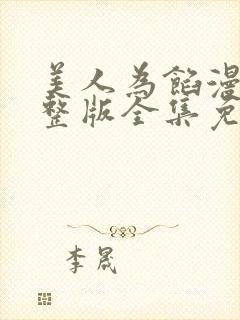 美人為餡漫
整版全集免
李晟